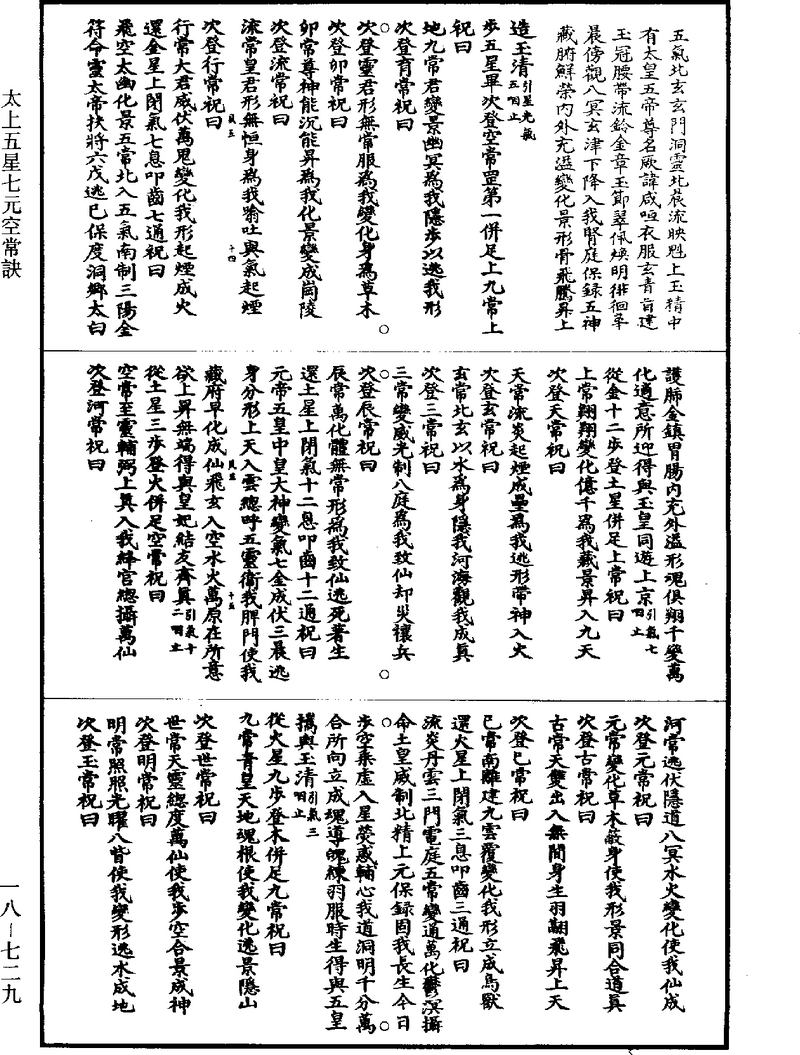 五氣北玄玄門洞靈北晨流映魁上玉精中
有太皇五帝尊名厥諱咸咺衣服玄青首建
玉冠腰帶流鈴金章玉節翠佩煥明徘徊華
晨傍觀八冥玄津下降入我腎庭保録五神
藏腑鮮榮內外充溢變化景形骨飛騰昇上
造玉清引星光氣五咽止
步五星畢次登空常罡第一併足上九常上
祝曰
地九常君變景幽冥為我隱步以逃我形
次登育常祝曰
次登靈君形無常服為我變化身為草木
次登卯常祝曰
卯常尊神能沉能昇為我化景變成崗陵
次登流常祝曰
流常皇君形無恒身為我喻吐與氣起煙
次登行常祝曰
行常大君威伏萬鬼變化我形起煙成火
還金星上閉氣七息叩齒七通祝曰
飛空太幽化景五常北入五氣南制三陽金
符命靈太帝扶將六戊逃巳保度洞鄉太白
護肺金鎮胃腸內充外溢形魂俱翔千變萬
化適意所迎得與玉皇同遊上京引氣七咽止
從金十二步登土星併足上常祝曰
上常翱翔變化億千為我藏景昇入九天
次登天常祝曰
天常流炎起煙成壘為我逃形帶神入火
次登玄常祝曰
玄常北玄以水為身隱我河海觀我成真
次登三常祝曰
三常變威光制八庭為我致仙却災禳兵
次登辰常祝曰
辰常萬化體無常形為我致仙逃死著生
還土星上閉氣十二息叩齒十二通祝曰
元帝五皇中皇大神變氣七金成伏三晨逃
身分形上天入雲總呼五靈衛我脾門使我
藏府早化成仙飛玄入空水火萬原在所意
欲上昇無端得與皇妃結友齊真引氣十二咽止
從土星三步登火併足空常祝曰
空常至靈輔弼上真入我絳宮總攝萬仙
次登河常祝曰
河常逃伏隱道八冥水火變化使我仙成
次登元常祝曰
元常變化草木蔽身使我形景同合道真
次登古常祝曰
古常天雙出入無間身生羽翮飛昇上天
次登巳常祝曰
巳常南離建九雲覆變化我形立成鳥獸
還火星上閉氣三息叩齒三通祝曰
流炎丹雲三門電庭五常變通萬化鬱溟攝
命土皇威制北精上元保録固我長生今日
步空乘虛入星熒惑輔心我道洞明千分萬
合所向立成魂導魄練羽服時生得與五皇
攜與玉清引氣三咽止
從火星九步登木併足九常祝曰
九常青皇天地魂根使我變化逃景隱山
次登世常祝曰
世常天靈總度萬仙使我步空合景成神
次登明常祝曰
明常照照光曜八皆使我變形逃水成地
次登玉常祝曰
太上五星七元空常訣
一八-七二九